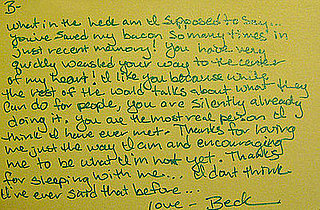 B-
What in the heck am I supposed to say...
you've saved my bacon so many times in
just recent memory! You have very
quickly weasled your way to the center
of my heart! I like you because while
the rest of the world talks about what they
can do for people, you are silently already
doing it. you are the most real person I
think I have ever met- Thanks for loving
me just the way I am and encouraging
me to be what I'm not yet. Thanks
for sleeping with me... I dont think
I've ever said that before...
love - Beck